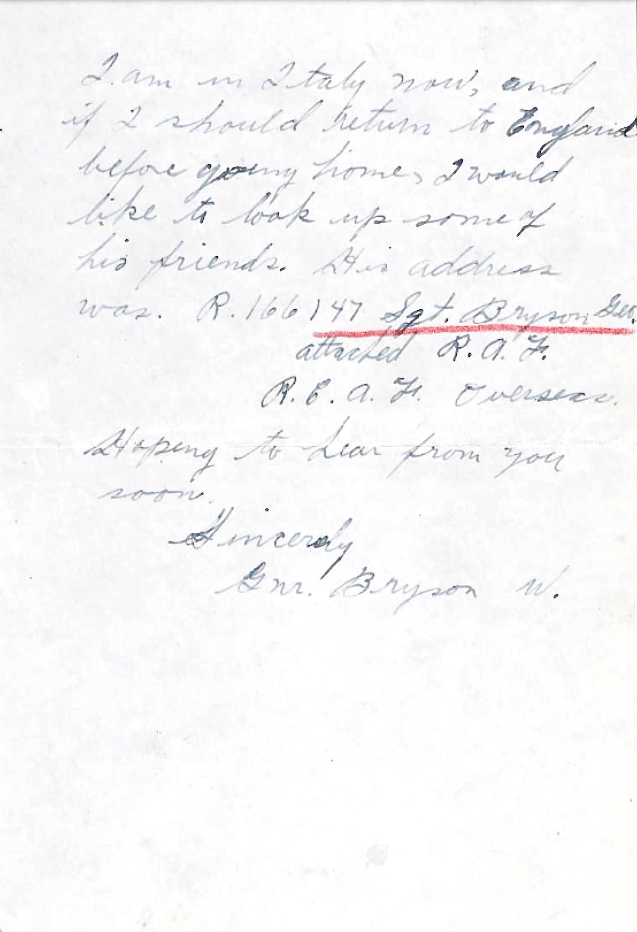 I am in Italy now, and
if I should return to England
before going home, I would
like to look up some of
his friends. His address
was. R.166147 Sgt. Bryson, Geo.
attached R.A.F.
R.C.A.F. Overseas.
Hoping to hear from you
soon.
Sincerely
Gnr. Bryson W.